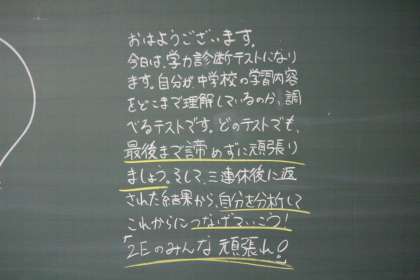 おはようございます。
今日は、学力診断テストになり
ます。自分が中学校の学習内容
をどこまで理解しているのか、調
べるテストです。どのテストでも、
最後まで諦めずに頑張り
ましょう。そして、三連休後に返
された結果から、自分を分析して
これからにつなげていこう!
「2Eのみんな頑張れ!」